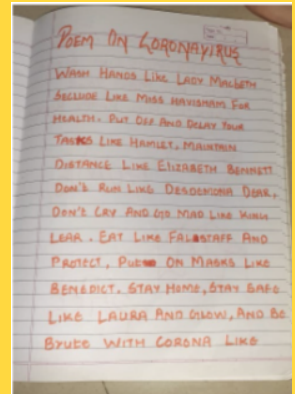 POEM ON CORONAVIRUS
WASH HANDS LIKE LADY MACBETH
SECLUDE LIKE MISS HAVISHAM FOR
HEALTH. PUT OFF AND DELAY YOUR
TASKS LIKE HAMLET, MAINTAIN
DISTANCE LIKE ELIZABETH BENNETT
DON'T RUN LIKE DESDEMONA DEAR,
DON'T CRY AND GO MAD LIKE KING
LEAR. EAT LIKE FALSTAFF AND
PROTECT, PUT ON MASKS LIKE
BENEDICT. STAY HOME, STAY SAFE
LIKE LAURA AND GLOW, AND BE
BRUTE WITH CORONA LIKE